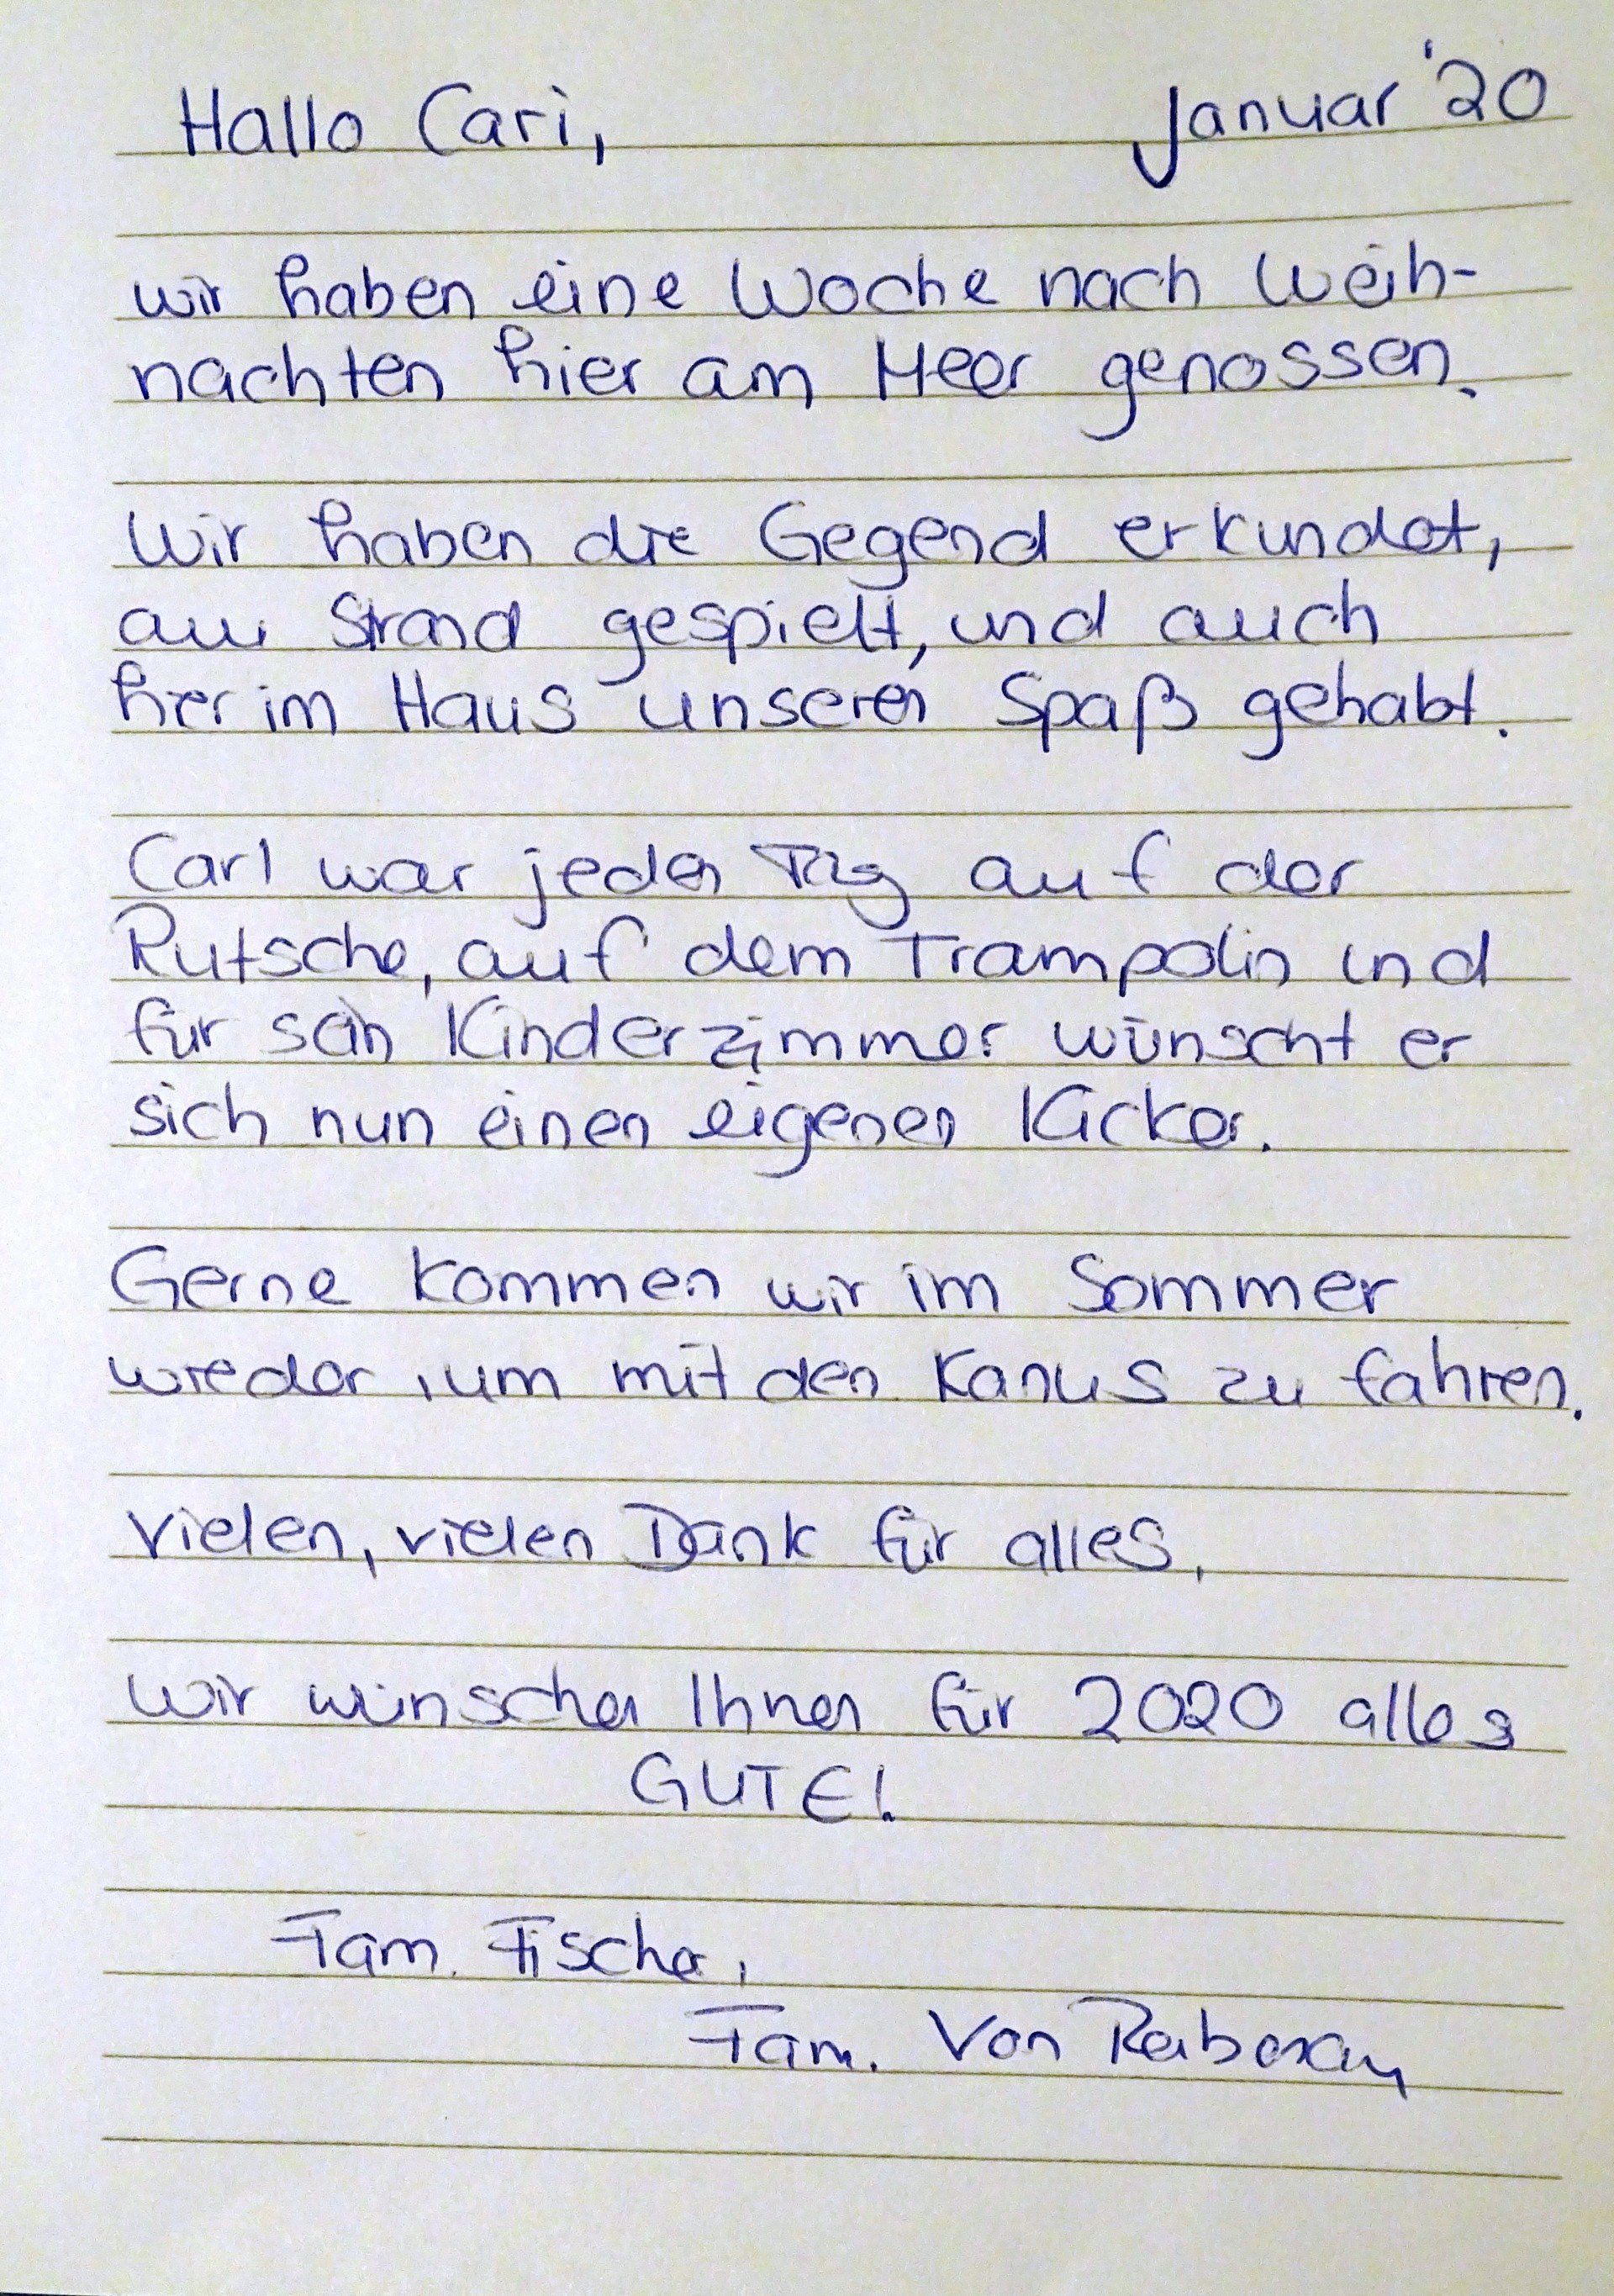 Hallo Cari, Januar '20
wir haben eine Woche nach Weih-
nachten hier am Meer genossen.
Wir haben die Gegend erkundet,
am Strand gespielt, und auch
hier im Haus unseren Spaß gehabt.
Carl war jeden Tag auf der
Rutsche, auf dem Trampolin und
für sein Kinderzimmer wünscht er
sich nun einen eigenen Kicker.
Gerne kommen wir im Sommer
wieder, um mit den Kanus zu fahren.
Vielen, vielen Dank für alles,
Wir wünschen Ihnen für 2020 alles
GUTE!
Fam. Fischer,
Fam. Von